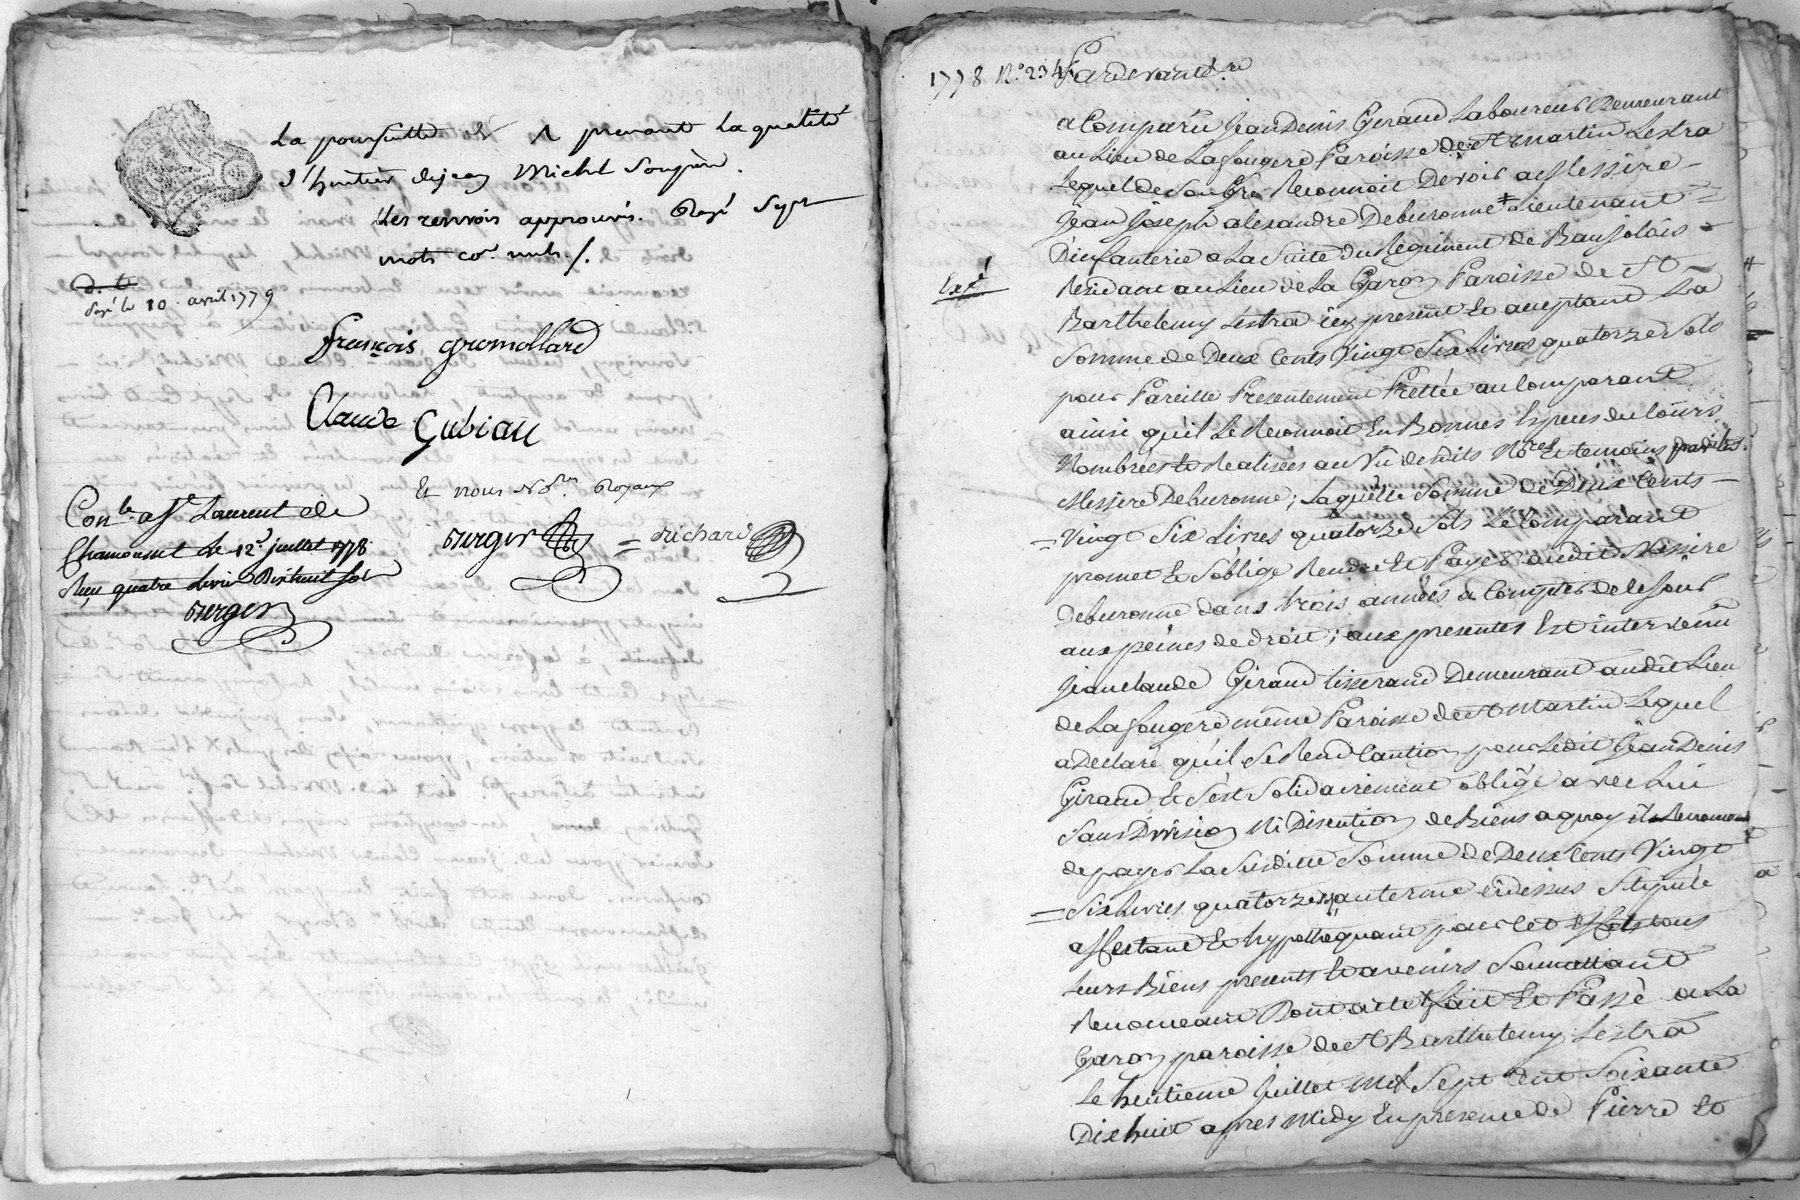 La poursuitte et prenant la qualité
d'heritier de jean Michel
Les renvois approuvés. Rayé Sept
mots comme nuls ./.
Exp.é le 10 avril 1779
françois gromollard
Claude Gubian
Et nous No.res Royaux
Berger = Richard
Con.lé a S.t Laurent de
Chamousset Le 12.e juillet 1778
Reçu quatre Livres Dixhuit sols
Berger
1778 N.o 234
Pardevant &.a
a Comparu Jean Denis Giraud Laboureur Demeurant
au Lieu de La fougere Paroisse de St Martin Lestra
Lequel de Son Gré Reconnoit Devoir a Messire -
Jean Joseph alexandre Deburonne ‡ Lieutenant =
D'infanterie a La Suite du Regiment de Baujolois -
Exp.é
Residant au Lieu de La Garon Paroisse de St -
Barthelemy Lestra icy present et acceptant La
Somme de Deux Cents Vingt Six Livres quatorze Sols
pour Pareille Presentement Prettée au Comparant
ainsi qu'il Le Reconnoit En Bonnes Especes du Cours
Nombrées et Realisées au Vû desdits No.res Et temoins par led.
Messire Deburonne; Laquelle Somme de Deux Cents -
= Vingt Six Livres quatorze Sols Le Comparant
promet Et S'oblige Rendre Et Payer audit Messire
Deburonne dans trois années a Compter de Ce Jour
aux peines de droit; aux presentes Est intervenu
Jean Claude Giraud tisserand Demeurant audit Lieu
de La fougere même Paroisse de St Martin Lequel
a Declaré qu'il Se Rend Caution pour Ledit Jean Denis
Giraud Et S'est Solidairement obligé avec Lui
Sans Division Ni Discution de Biens a quoy il Renonce
de payer La Susditte Somme de Deux Cents Vingt
= Six Livres quatorze sols au terme cidessus Stipulé
affectant Et hypothequant pour Cet Effet tous
Leurs Biens presents Et avenirs Soumettant
Renonceant Dont acte ‡ fait Et Passé a La
Garon paroisse de St Barthelemy Lestra
Le huitieme Juillet Mil Sept Cent Soixante
Dix huit apres Midy En presence de Pierre Et